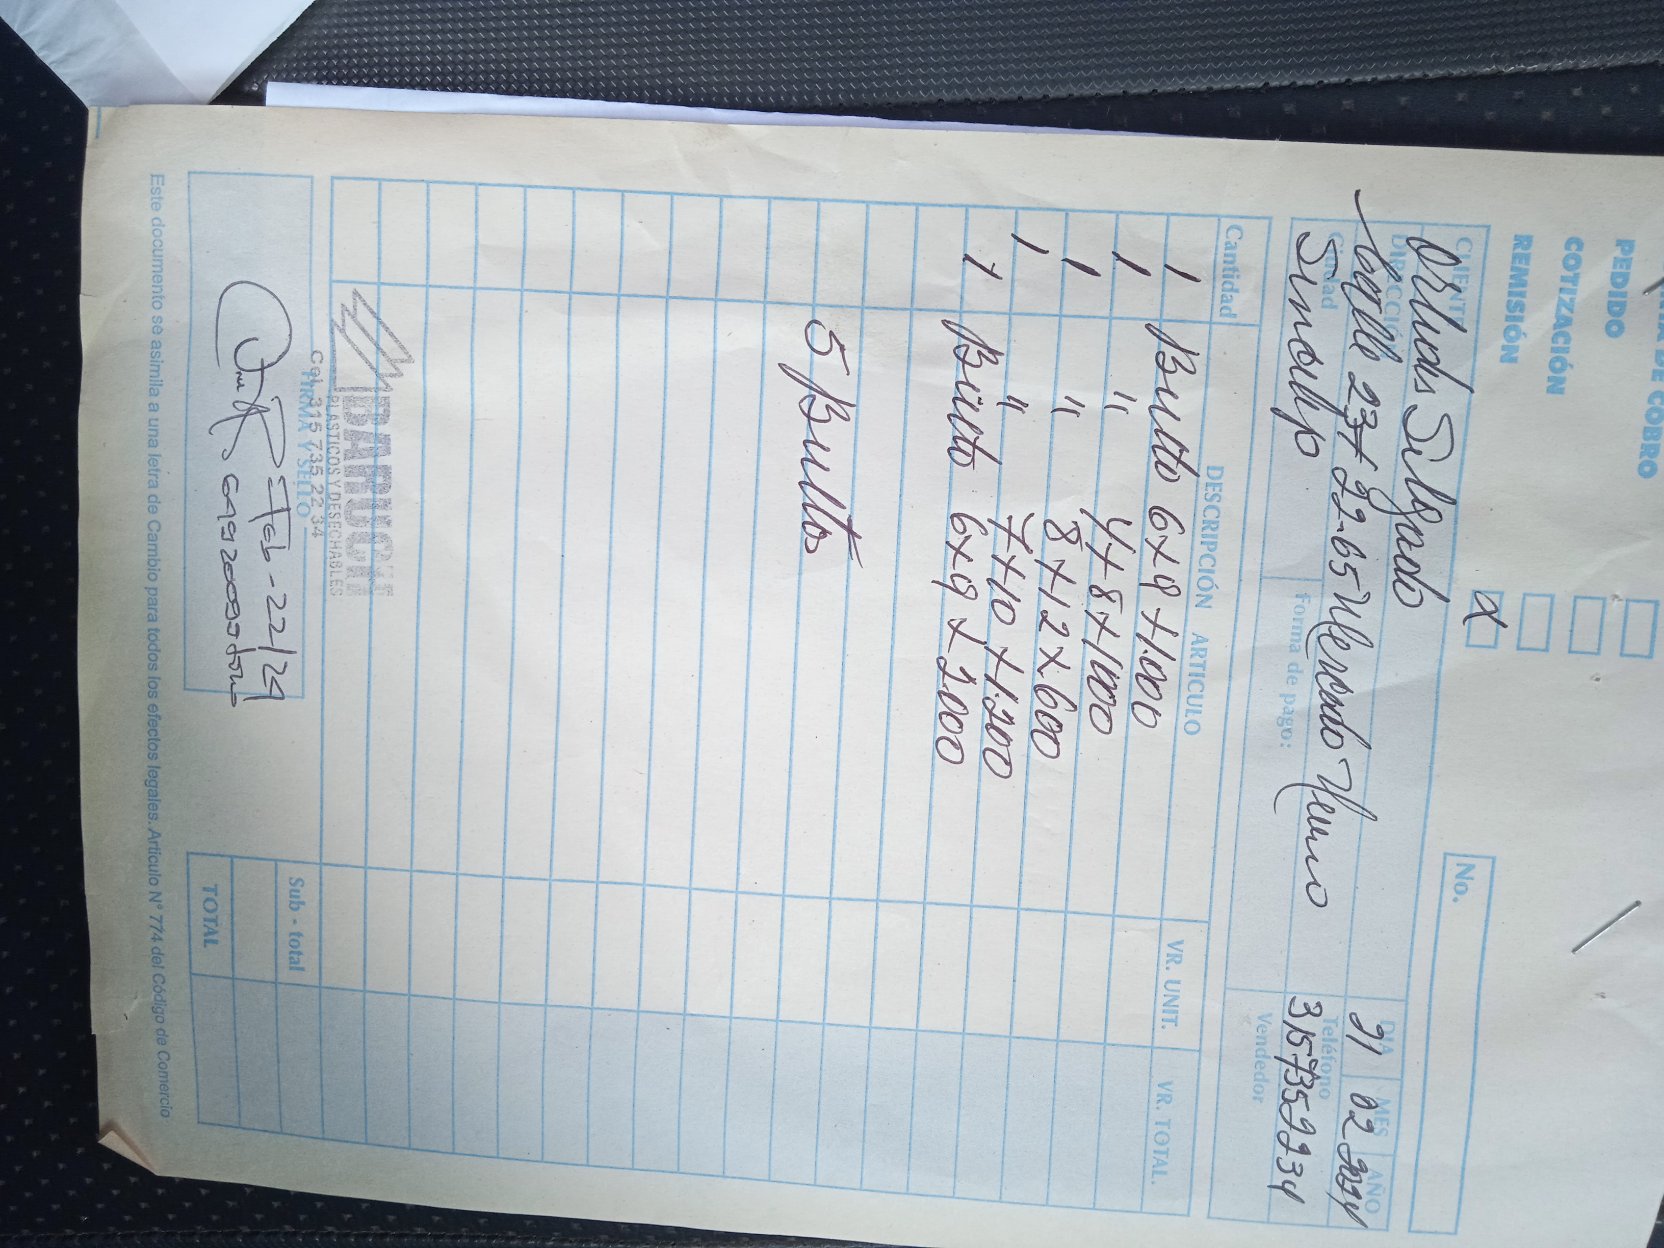 A DE COBRO
PEDIDO
COTIZACIÓN
REMISIÓN X
No.
CLIENTE Salgado
DIA MES AÑO
21 02 2024
DIRECCIÓN Calle 23 22-65 Mercado Nuevo
Teléfono
3157352234
Ciudad Sincelejo
Forma de pago:
Vendedor
Cantidad DESCRIPCIÓN ARTICULO VR. UNIT. VR. TOTAL.
1 Bulto 6x9x1.000
1 " 4x8x1000
1 " 8x12x600
1 " 7x10x1.200
1 Bulto 6x9x1.000
5 Bultos
PLASTICOS Y DESECHABLES
Cel. 315 735 22 34
FIRMA Y SELLO
Feb-22/24
Sub - total
TOTAL
Este documento se asimila a una letra de Cambio para todos los efectos legales. Articulo N° 774 del Código de Comercio